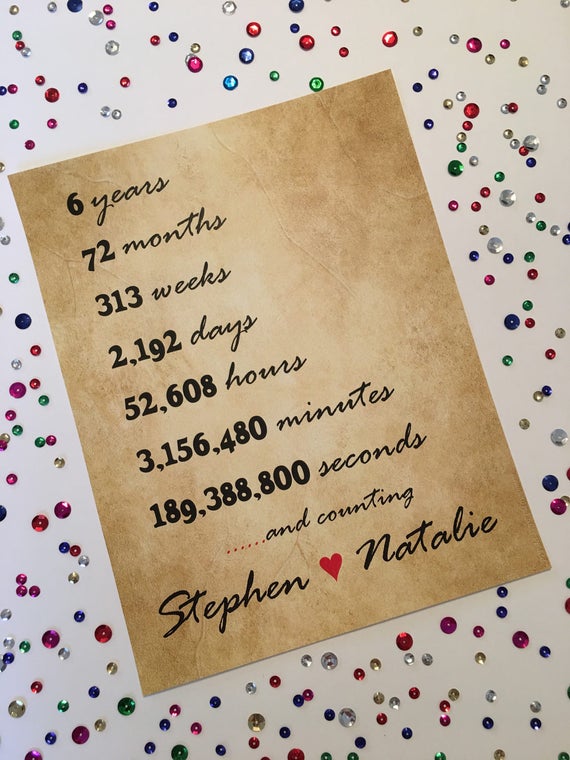 6 years
72 months
313 weeks
2,192 days
52,608 hours
3,156,480 minutes
189,388,800 seconds
......and counting
Stephen ♥ Natalie